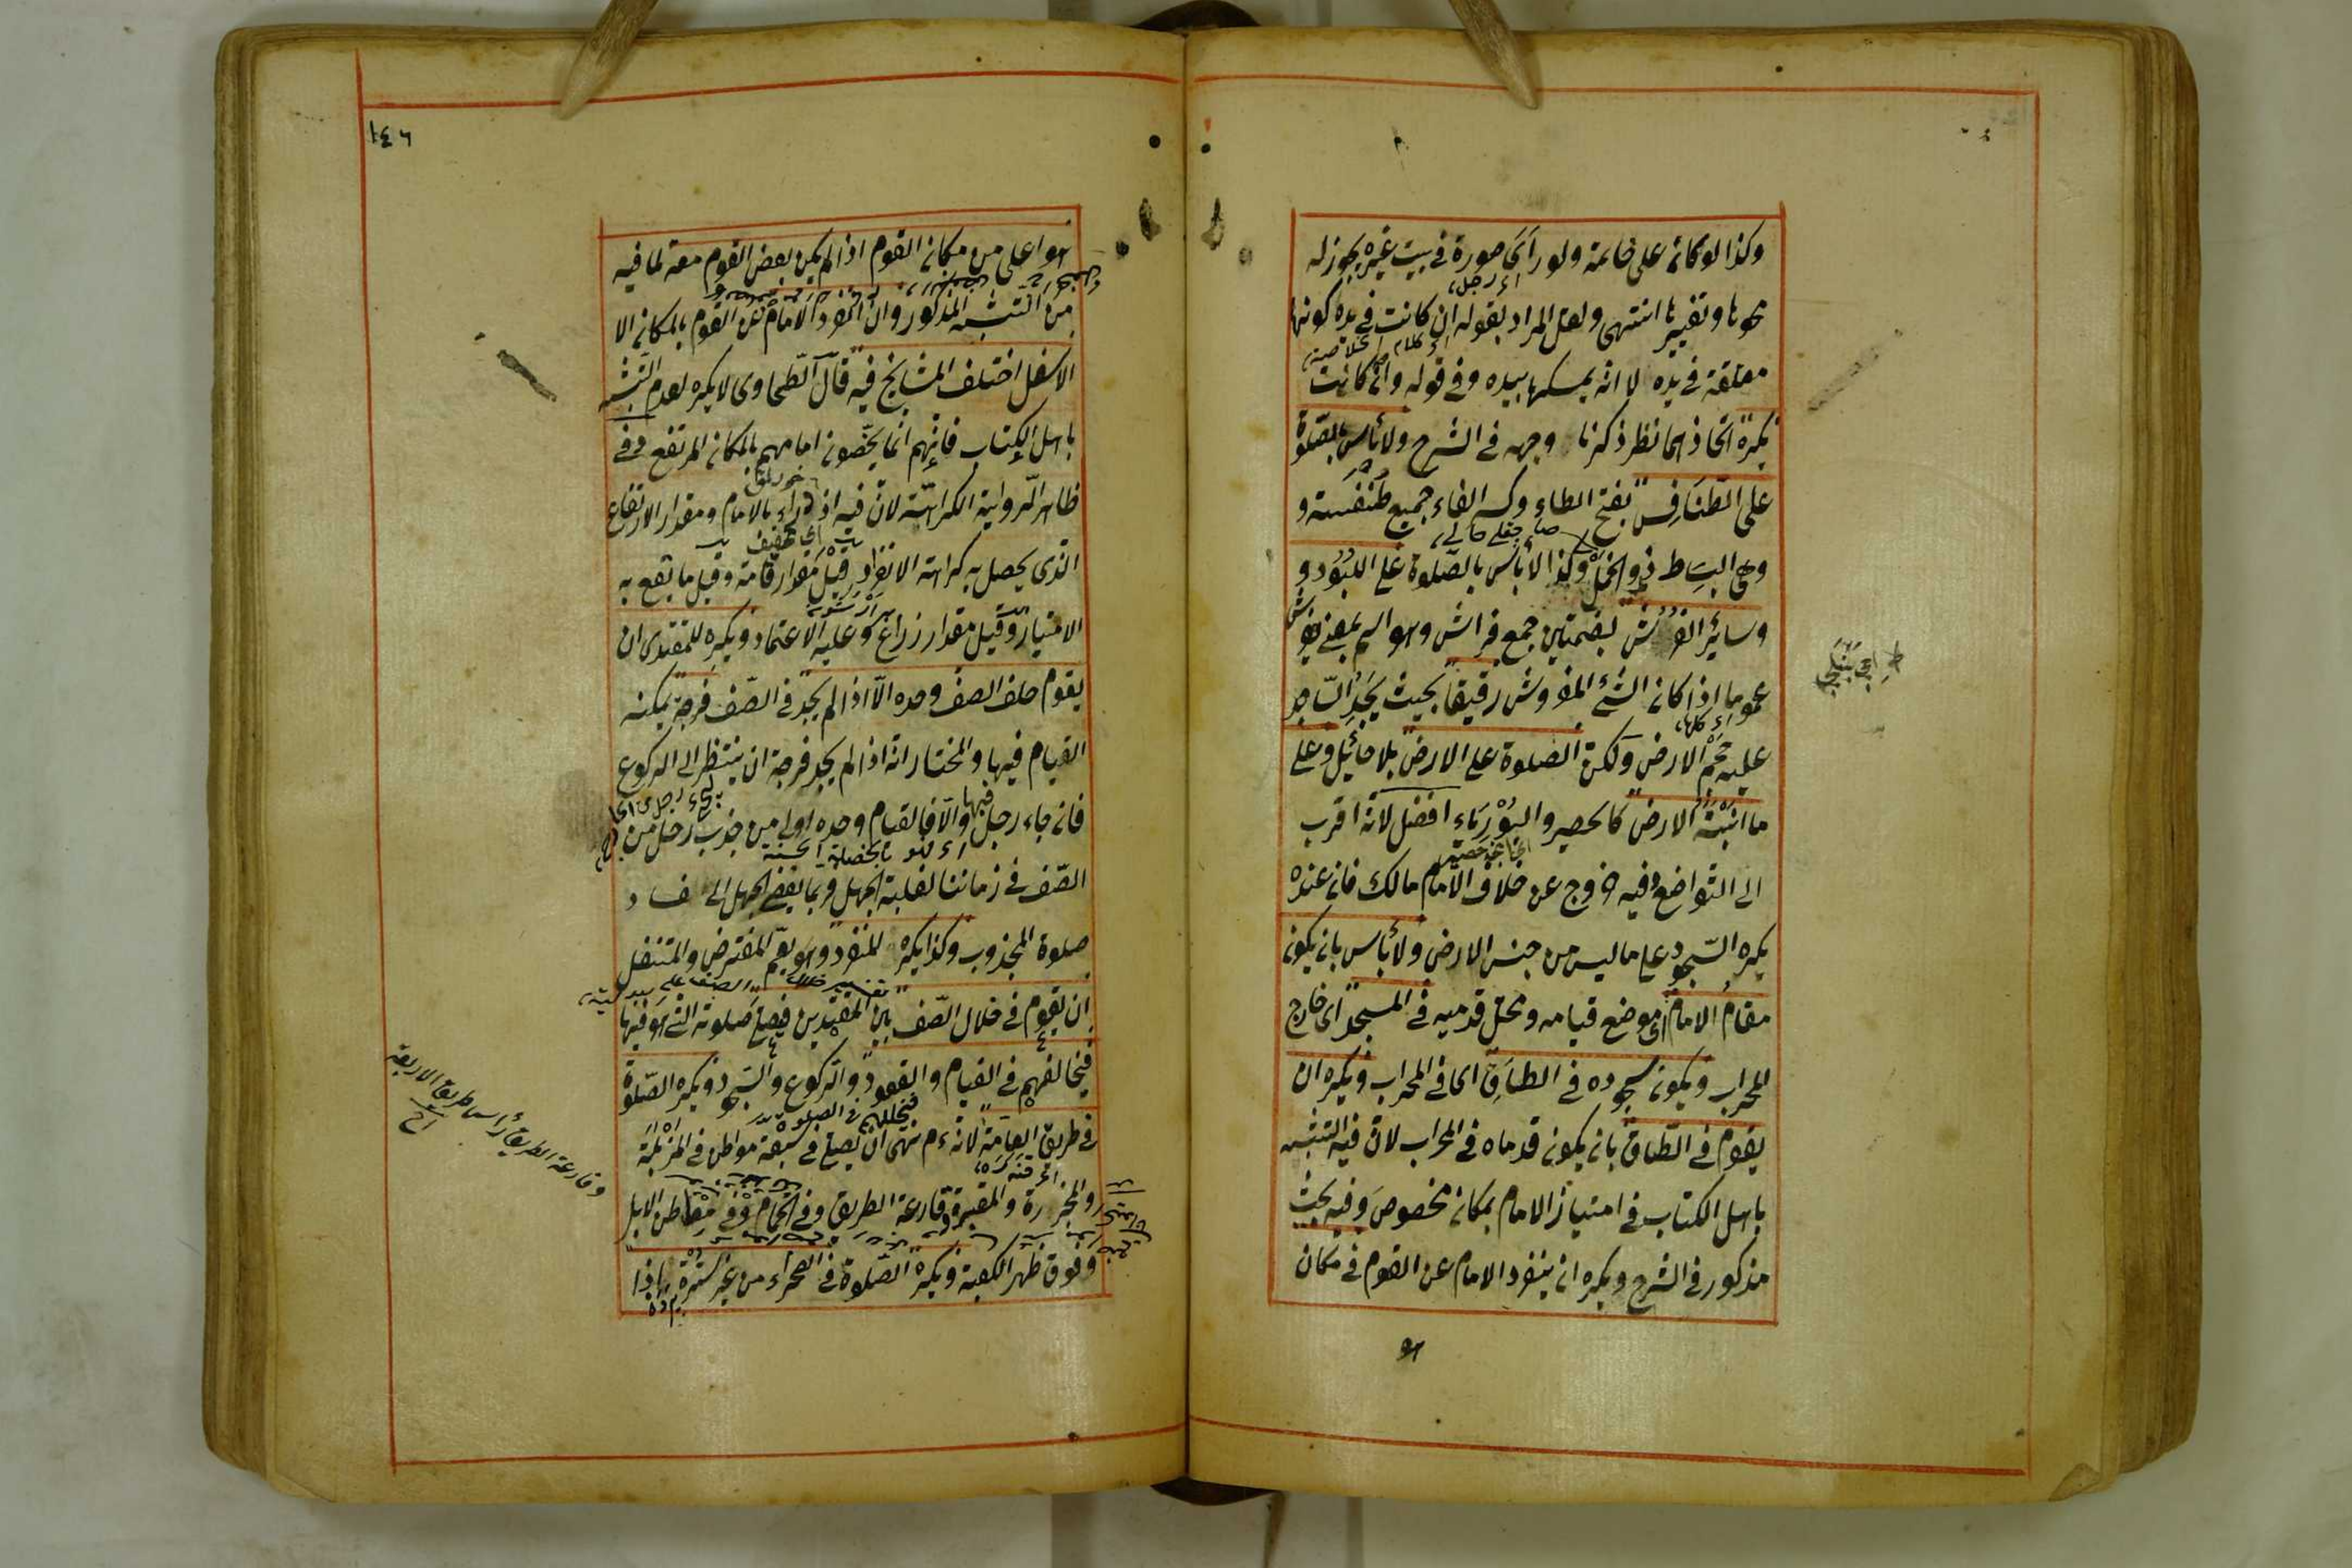 وكذا لو كان على خاتمه ولو رأى صورة في بيت غيره يجوز له
محوها وتغييرها انتهى ولعل المراد بقوله ان كانت في يده كونها
معلقة في يده لا انه يمسكها بيده وفي قوله وان كانت
يكره اتخاذها نظر ذكرنا وجهه في الشرح ولا بأس بالصلوة
على الطنافس بفتح الطاء وكسر الفاء جمع طنفسة و
وهي البساط ذو الخمل وكذا لا بأس بالصلوة على اللبود و
وسائر الفرش بضمتين جمع فراش وهو اسم بمعنى مفروش
عموما اذا كان الشئ المفروش رقيقا بحيث يجد الساجد
عليه حجم الارض ولكن الصلوة على الارض بلا حائل وعلى
ما انبته الارض كالحصير والبورياء افضل لانه اقرب
الى التواضع وفيه خروج عن خلاف الامام مالك فان عنده
يكره السجود على ما ليس من جنس الارض ولا بأس بان يكون
مقام الامام اى موضع قيامه ومحل قدميه في المسجد اى خارج
المحراب ويكون سجوده في الطاق اى في المحراب ويكره ان
يقوم في الطاق بان يكون قدماه في المحراب لان فيه التشبه
باهل الكتاب في امتياز الامام بمكان مخصوص وفيه بحث
مذكور في الشرح ويكره ان ينفرد الامام عن القوم في مكان
هو
١٤٦
هو اعلى من مكان القوم اذا لم يكن بعض القوم معه لما فيه
من التشبه المذكور وان انفرد الامام عن القوم بالمكان الا
الاسفل اختلف المشايخ فيه قال الطحاوى لا يكره لعدم التشبه
باهل الكتاب فانهم انما يخصون امامهم بالمكان المرتفع وفي
ظاهر الرواية الكراهة لان فيه ازدراء بالامام ومقدار الارتفاع
الذى يحصل به كراهة الانفراد قيل مقدار قامة وقيل ما يقع به
الامتياز وقيل مقدار ذراع وعليه الاعتماد ويكره للمقتدى ان
يقوم خلف الصف وحده الا اذا لم يجد في الصف فرجة يمكنه
القيام فيها والمختار انه اذا لم يجد فرجة ان ينتظر الى الركوع
فان جاء رجل فبها والا فالقيام وحده اولى من جذب رجل من
الصف في زماننا لغلبة الجهل وبما يفضى الجهل الى فساد
صلوة المجذوب وكذا يكره للمنفرد وهو يعم المفترض والمتنفل
ان يقوم في خلال الصف بين المقتدين فيصلى صلوته التى هو فيها
فيخالفهم في القيام والقعود والركوع والسجود ويكره الصلوة
في طريق العامة لانه ءم نهى ان يصلى في سبعة مواطن في المزبلة
والمجزرة والمقبرة وقارعة الطريق وفي الحمام وفي معاطن الابل
وفوق ظهر الكعبة ويكره الصلوة في الصحراء من غير سترة
وقارعة الطريق رأس طريق الاربعة